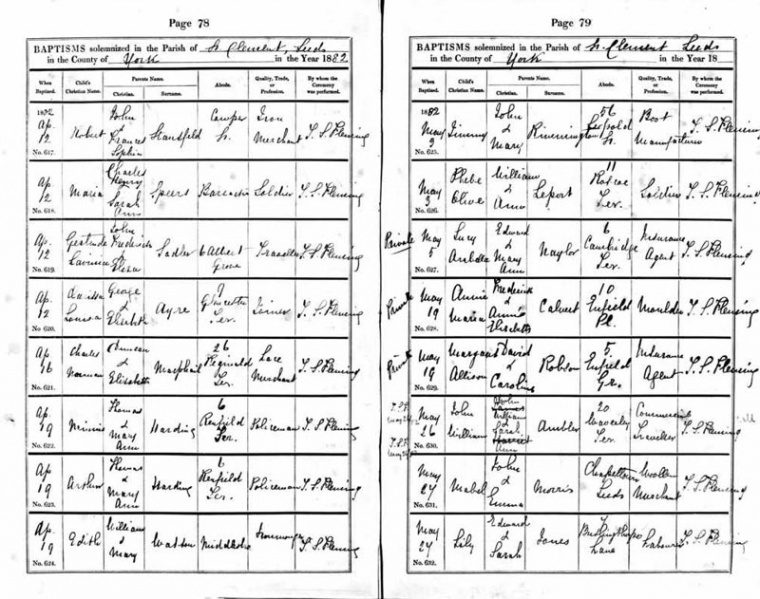 Page 78
BAPTISMS solemnized in the Parish of St Clement, Leeds
in the County of York in the Year 1882
When Baptized. Child's Christian Name. Parents Name. Abode. Quality, Trade, or Profession. By whom the Ceremony was performed.
Christian. Surname.
1882 Ap. 12 Robert John & Frances Sophia Hansfield Cowper St. Iron Merchant T. S. Fleming
No. 617.
Ap 12 Maria Charles Henry & Sarah Ann Speers Barracks Soldier T. S. Fleming
No. 618.
Ap. 12 Gertrude Lavinia John Frederick & Eliza Sadler 6 Albert Grove Traveller T. S. Fleming
No. 619.
Ap. 12 Louisa George & Elizabeth Ayre 7 Gloucester Ter. Joiner T. S. Fleming
No. 620.
Ap 16 Charles Norman Duncan & Elizabeth Macphail 26 Reginald Ter. Lace Merchant T. S. Fleming
No. 621.
Ap 19 Minnie Thomas & Mary Ann Harding 6 Renfield Ter. Policeman T. S. Fleming
No. 622.
Ap 19 Arthur Thomas & Mary Ann Harding 6 Renfield Ter. Policeman T. S. Fleming
No. 623.
Ap. 19 Edith William & Mary Watson Ironmonger T. S. Fleming
No. 624.
Page 79
BAPTISMS solemnized in the Parish of St Clement Leeds
in the County of York in the Year 18
When Baptized. Child's Christian Name. Parents Name. Abode. Quality, Trade, or Profession. By whom the Ceremony was performed.
Christian. Surname.
1882 May 3 Jimmy John & Mary Rivernington 56 Leopold St. Boot Manufacturer T. S. Fleming
No. 625.
May 3 Phebe Olive William & Ann Leport 11 Ter. Soldier T. S. Fleming
No. 626.
Private May 5 Lucy Arabella Edward & Mary Ann Naylor 6 Cambridge Ter. Insurance Agent T. S. Fleming
No. 627.
Private May 19 Annie Maria Frederick & Annie Elizabeth Calvert 10 Enfield Pl. Moulder T. S. Fleming
No. 628.
Private May 19 Margaret Allison David & Caroline Robson 5 Enfield Insurance Agent T. S. Fleming
No. 629.
May 26 John William John James William & Sarah Harriet Ann Ambler 20 Waverley Ter. Commercial Traveller T. S. Fleming
No. 630.
May 27 Mabel John & Emma Morris Chapeltown Leeds Woollen Merchant T. S. Fleming
No. 631.
May 27 Lily Edward & Sarah Jones Buslingthorpe Lane Labourer T. S. Fleming
No. 632.